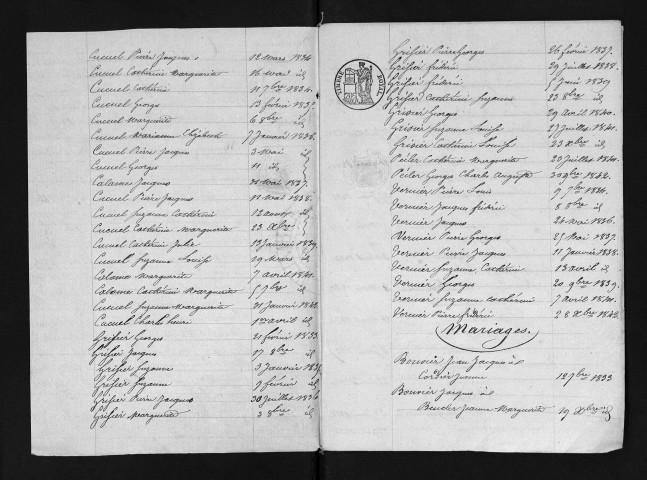 Cucuel Pierre Jacques 12 Mars 1834
Cucuel Catherine Marguerite 16 Mars id
Cucuel Catherine 11 7bre 1834
Cucuel George 13 fevrier 1835
Cucuel Marguerite 6 8bre id
Cucuel Marianne Elisabeth 7 Janvier 1836
Cucuel Pierre Jacques 3 Mai id
Cucuel George 11 id
Calame Jacques Mai 1837
Cucuel Pierre Jacques 11 Mai 1838
Cucuel Suzanne Catherine 12 aout id
Cucuel Catherine Marguerite 23 Xbre id
Cucuel Catherine Julie 13 Janvier 1839
Cucuel Suzanne Louise 19 Mars id
Calame Marguerite 7 avril 1841
Calame Catherine Marguerite 5 7bre id
Cucuel Suzanne Marguerite 21 Janvier 1842
Cucuel Charles henri 1er avril id
Grisier Georges 21 fevrier 1833
Grisier Jacques 17 9bre id
Grisier Suzanne 3 Janvier
Grisier Suzanne 9 fevrier id
Grisier Pierre Jacques 30 Juillet 1836
Grisier Marguerite 3 8bre id
Grisier Pierre Georges 26 fevrier 1837
Grisier frederic 29 Juillet 1838
Grisier frederic 5 Juin 1839
Grisier Catherine Suzanne 23 8bre id
Grisier Georges 29 Avril 1840
Grisier Suzanne Louise 27 Juillet 1840
Grisier Catherine Louise 23 Xbre id
Peiler Catherine Marguerite 20 Juillet 1840
Peiler George Charles Auguste 30 9bre 1842
Vernier Pierre Louis 9 7bre 1834
Vernier Jacques frederic 8 8bre id
Vernier Jacques 24 Mai 1836
Vernier Pierre Georges 25 Mai 1837
Vernier Pierre Jacques 11 Janvier 1838
Vernier Suzanne Catherine 13 avril id
Vernier Georges 20 9bre 1839
Vernier Suzanne Catherine 7 Avril 1841
Vernier Pierre frederic 28 Xbre 1842
Mariages.
Bouvier Jean Jacques et
Cordier Jeanne 12 9bre 1833
Bouvier Jacques et
Beucler Jeanne Marguerite 19 Xbre id
TIMBRE ROYAL